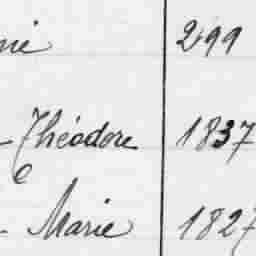 nie 299
- Théodore 1837
e
- Marie 1827